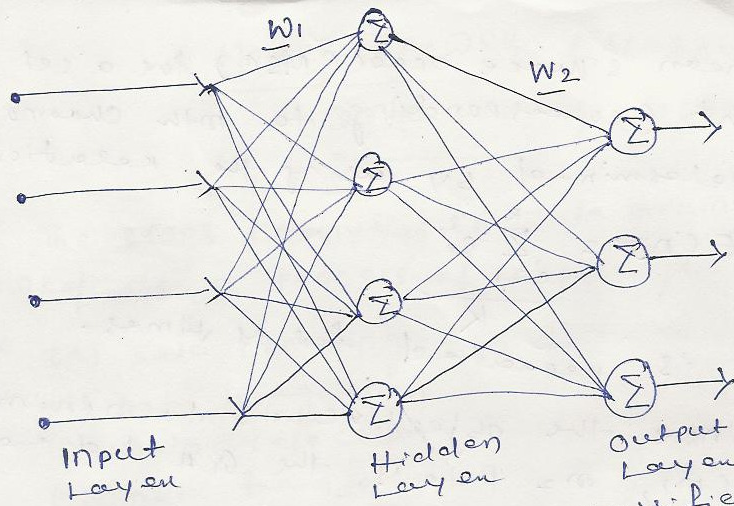 W1
W2
Σ
Σ
Σ
Σ
Σ
Σ
Σ
Input
Layer
Hidden
Layer
Output
Layer